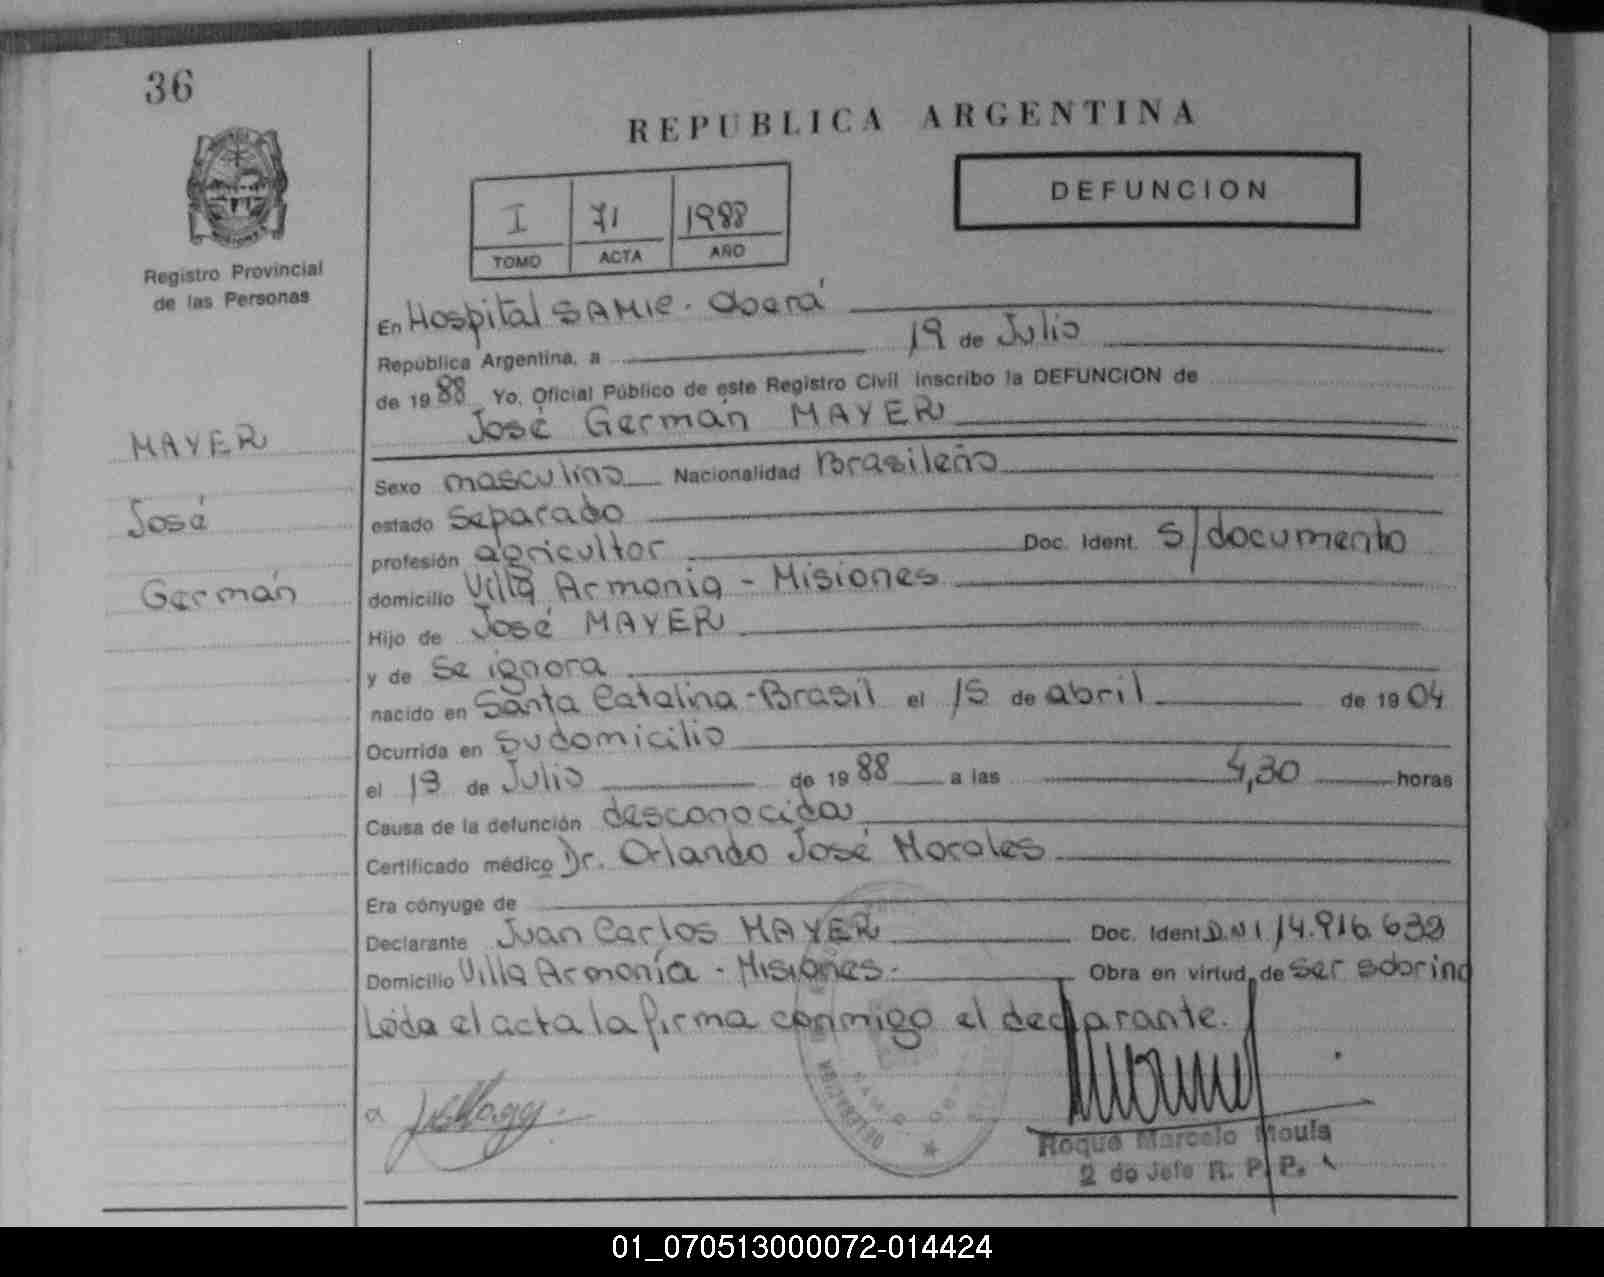 36
REPUBLICA ARGENTINA
DEFUNCION
I 71 1988
TOMO ACTA AÑO
Registro Provincial
de las Personas
MAYER
José
Germán
En Hospital SAMIC. Oberá
República Argentina, a 19 de Julio
de 1988 Yo, Oficial Público de este Registro Civil inscribo la DEFUNCION de
José Germán MAYER
Sexo masculino Nacionalidad Brasileño
estado separado
profesión agricultor Doc. Ident. S/documento
domicilio Villa Armonia - Misiones
Hijo de José MAYER
y de se ignora
nacido en Santa Catalina - Brasil el 15 de abril de 1904
Ocurrida en su domicilio
el 19 de Julio de 1988 a las 4,30 horas
Causa de la defunción desconocida
Certificado médico Dr. Orlando José Morales
Era cónyuge de
Declarante Juan Carlos MAYER Doc. Ident D.N.I 14.916.632
Domicilio Villa Armonía - Misiones. Obra en virtud de ser sobrino
Leida el acta la firma conmigo el declarante.
Roque Marcelo
2do Jefe R. P. P.
01_070513000072-014424